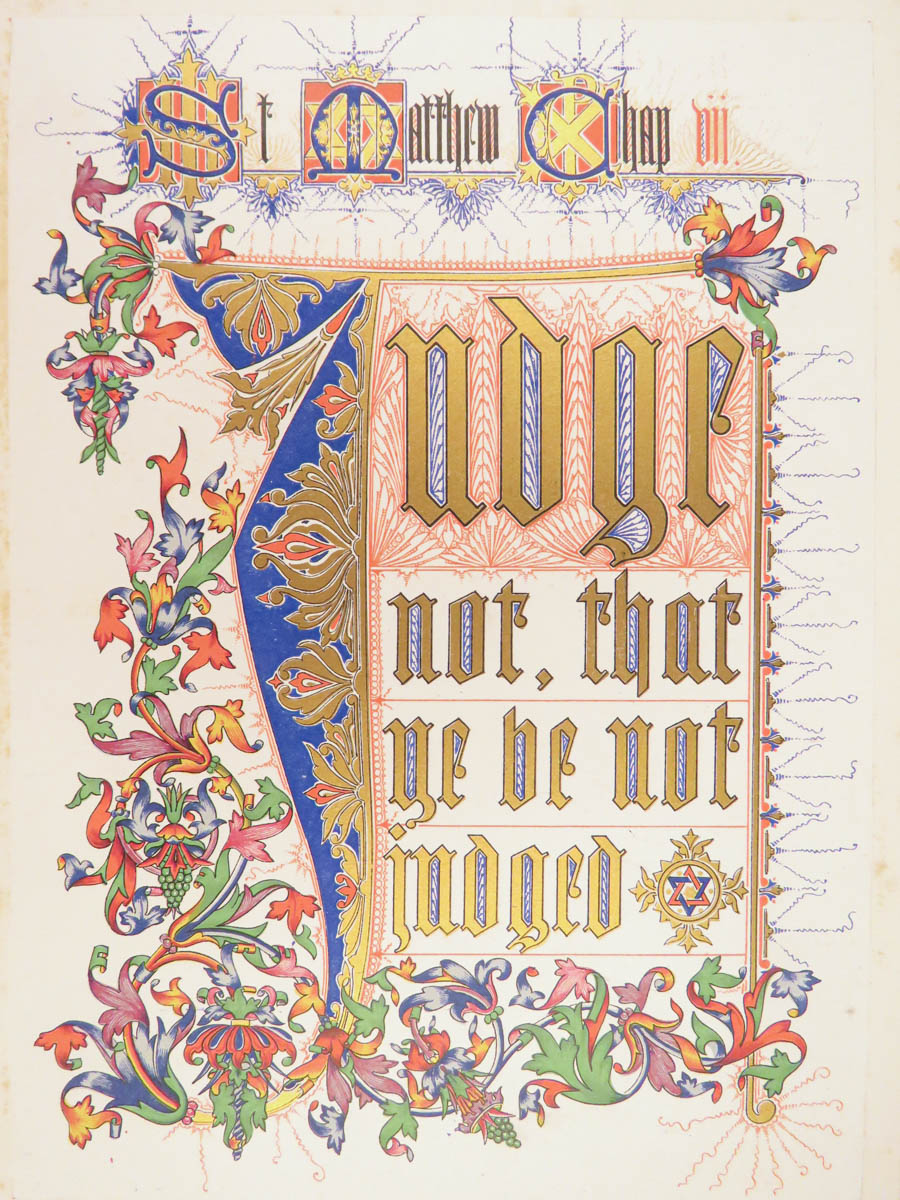 St Matthew Chap vii.
Judge
not, that
ye be not
judged